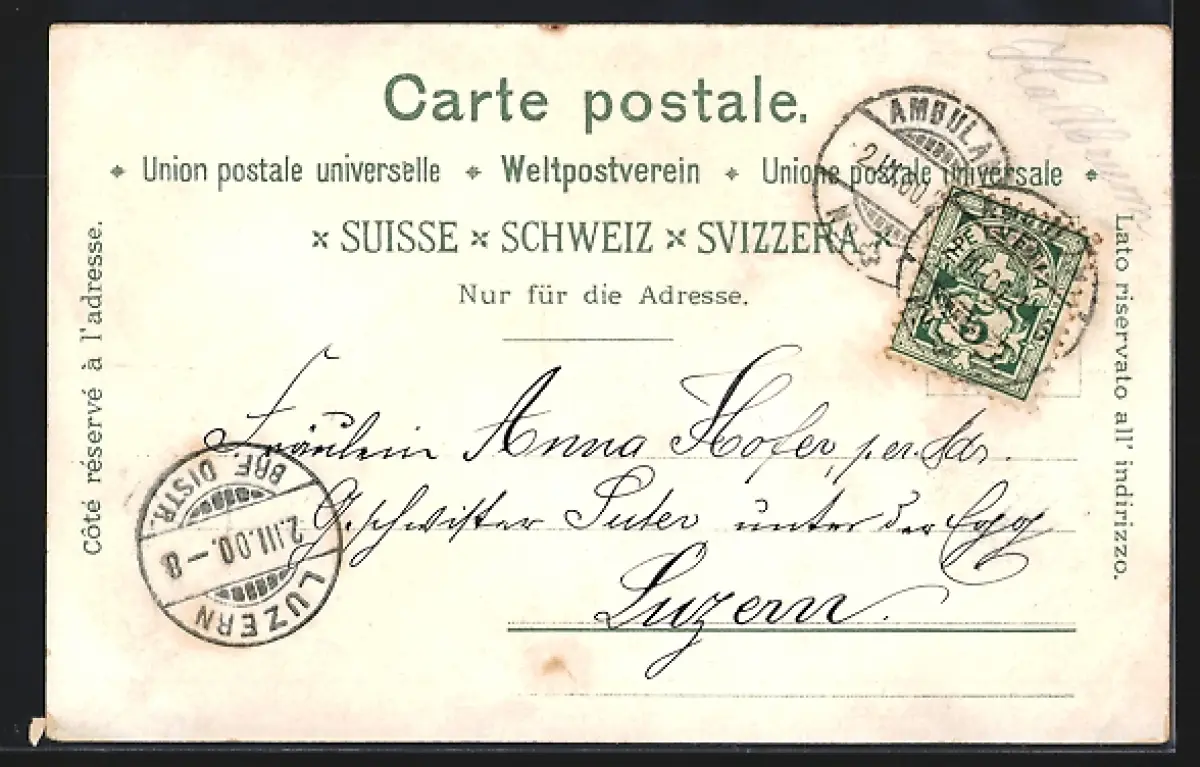 Carte postale.
Union postale universelle Weltpostverein Unione postale universale
× SUISSE × SCHWEIZ × SVIZZERA ×
Nur für die Adresse.
Côté réservé à l'adresse.
Lato riservato all' indirizzo.
AMBULAN
5
Fräulein Anna Hofer, per. Adr.
Geschwister Suter unter der Egg
Luzern.
BRF. DISTR.
2.III.00.–8
LUZERN